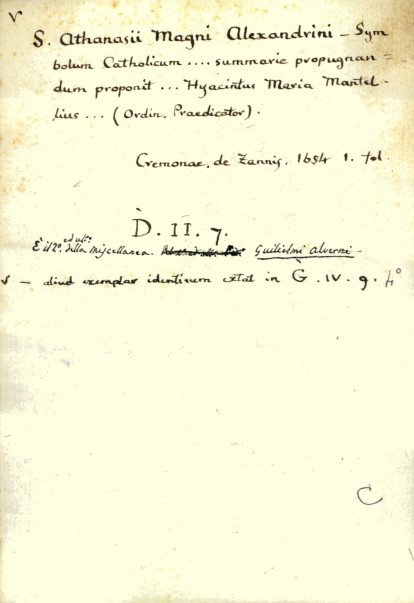 V
S. Athanasii Magni Alexandrini – Sym
bolum Catholicum .... summarie propugnan =
dum proponit ... Hyacintus Maria Mantel-
lius ... (Ordin. Praedicator).
Cremonae, de Zannis. 1654 1. fol.
D. II. 7.
È il 2º ed ultº della miscellanea. Guilielmi Alverni –
v – aliud exemplar identicum extat in G. IV. 9. 4º
C